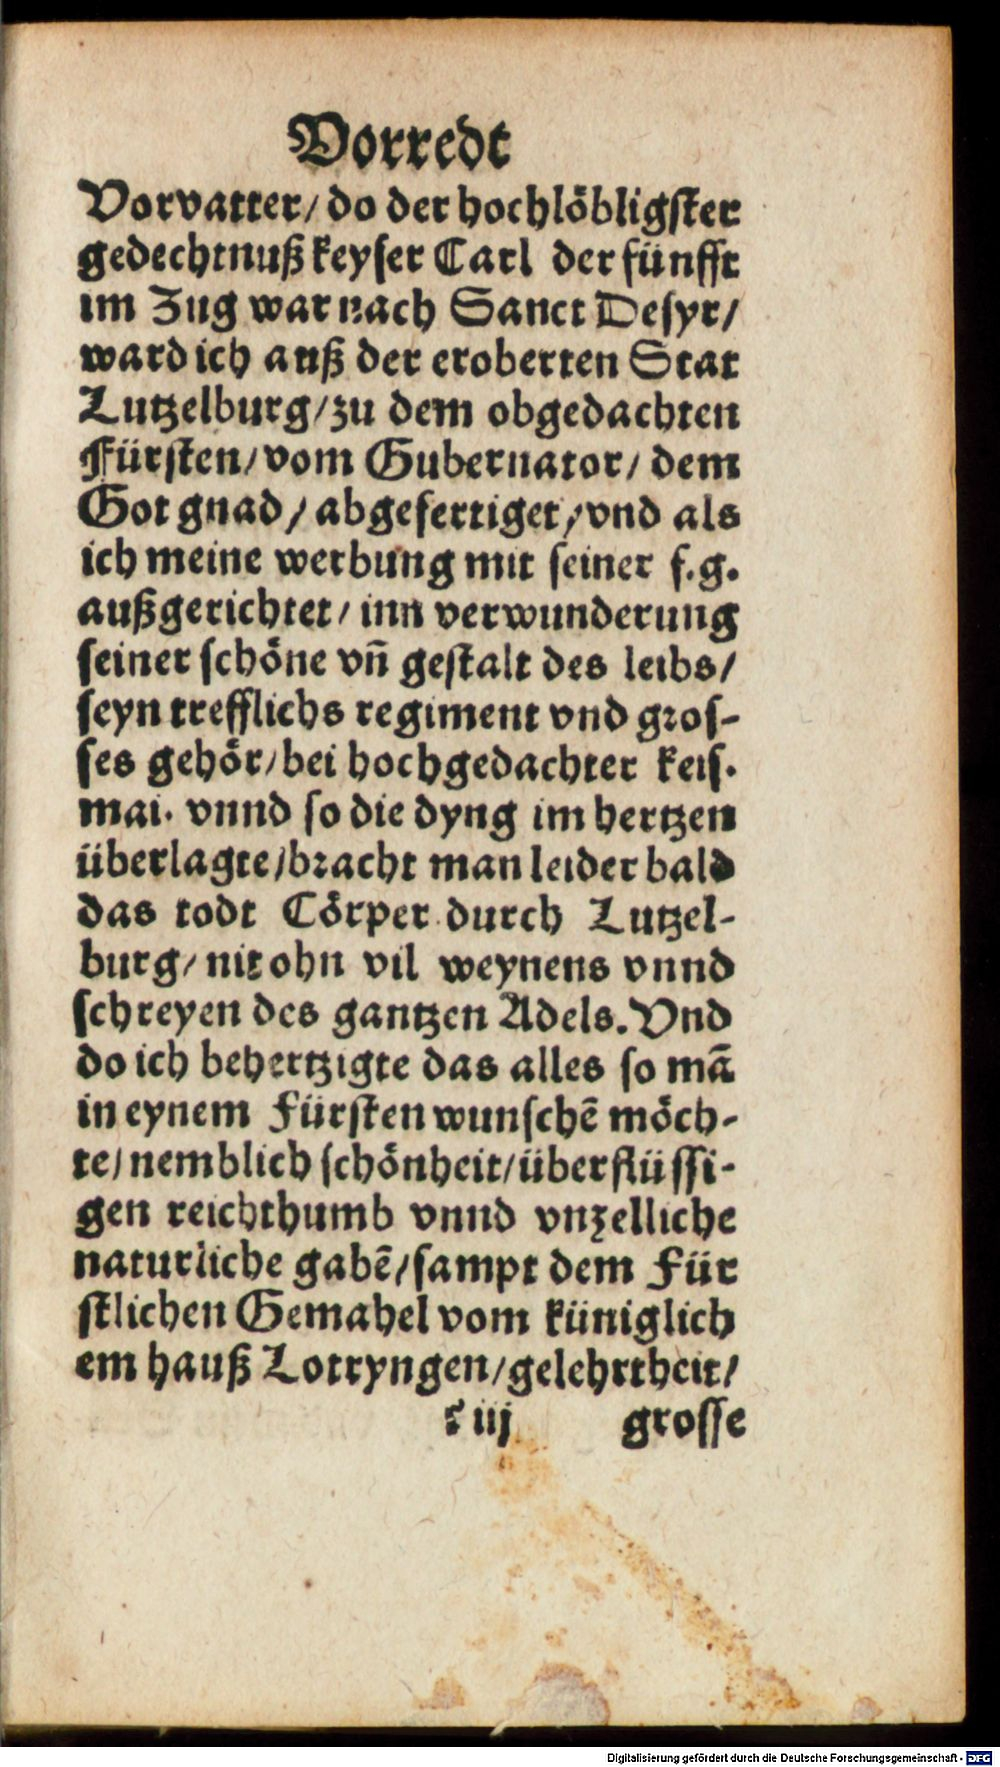 Vorredt
Vorvatter/ do der hochlöbligster
gedechtnuß keyser Carl der fünfft
im Zug war nach Sanct Desyr/
ward ich auß der eroberten Stat
Lutzelburg/ zu dem obgedachten
Fürsten/ vom Gubernator/ dem
Got gnad/ abgefertiget/ vnd als
ich meine werbung mit seiner f.g.
außgerichtet/ inn verwunderung
seiner schöne vñ gestalt des leibs/
seyn trefflichs regiment vnd gros-
ses gehör/ bei hochgedachter keis.
mai. vnnd so die dyng im hertzen
überlagte/ bracht man leider bald
das todt Cörper durch Lutzel-
burg/ nit ohn vil weynens vnnd
schreyen des gantzen Adels. Vnd
do ich behertzigte das alles so mā
in eynem Fürsten wunschē möch-
te/ nemblich schönheit/ überflüssi-
gen reichthumb vnnd vnzelliche
naturliche gabē/ sampt dem Für
stlichen Gemahel vom küniglich
em hauß Lotryngen/ gelehrtheit/
iij grosse
Digitalisierung gefördert durch die Deutsche Forschungsgemeinschaft - DFG